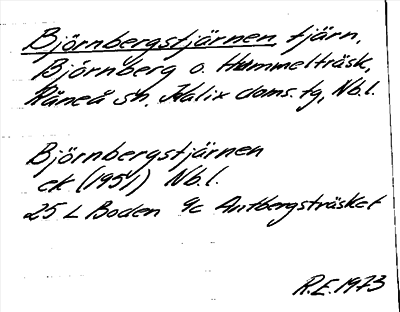 Björnbergstjärnen, tjärn,
Björnberg o. Hummelträsk,
Råneå sn, Kalix doms. tg, Nb.l.
Björnbergstjärnen
ek (1951) Nb.l.
25 L Boden 9c Antbergsträsket
R.E. 1973